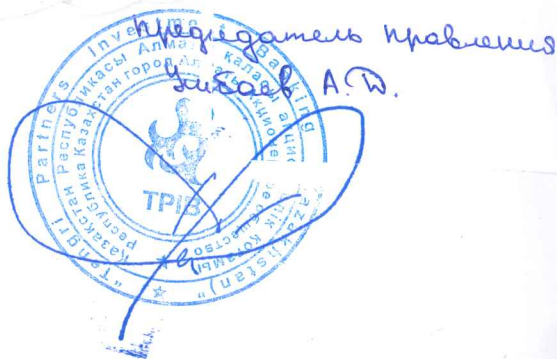 Председатель правления
Умбаев А.Д.
"Tengri Partners Investment Banking (Kazakhstan)"
Қазақстан Республикасы Алматы қаласы акционерлік қоғамы
Республика Казахстан город Алматы акционерное общество
TPIB